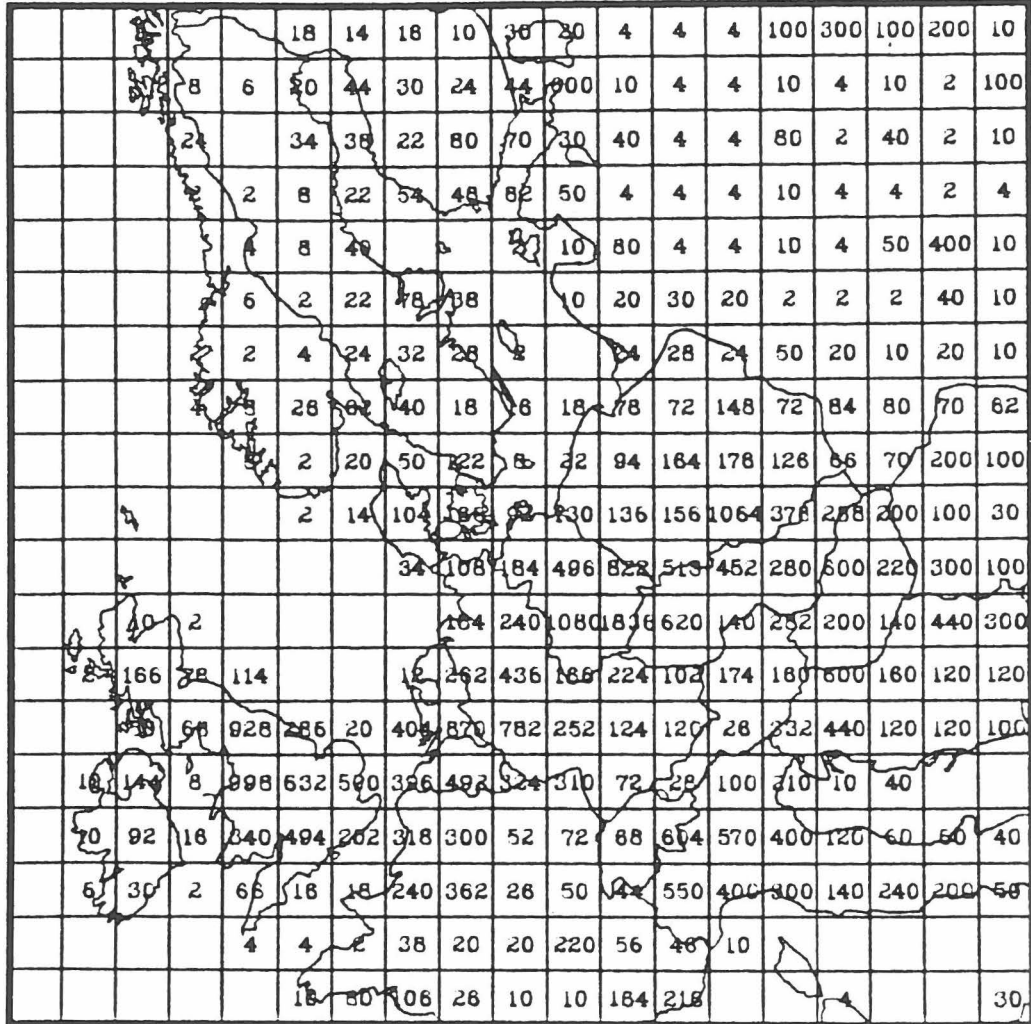 18 14 18 10 30 4 4 4 100 300 100 200 10
8 6 44 30 24 44 10 4 4 10 4 10 2 100
24 34 38 22 80 70 30 40 4 4 80 2 40 2 10
2 2 8 22 54 48 82 50 4 4 4 10 4 4 2 4
4 8 40 2 10 80 4 4 10 4 50 400 10
6 2 22 78 38 10 20 30 20 2 2 2 40 10
2 4 24 32 28 24 28 24 50 20 10 20 10
4 28 62 40 18 6 18 78 72 148 72 84 80 70 62
2 20 50 122 8 22 94 164 178 126 66 70 200 100
2 14 104 130 136 156 1064 378 288 200 100 30
34 108 184 496 822 513 452 280 600 220 300 100
40 2 164 240 1080 1836 620 140 282 200 140 440 300
166 28 114 12 262 436 186 224 102 174 160 600 160 120 120
68 928 286 20 404 870 782 252 124 120 26 332 440 120 120 100
10 144 8 998 632 590 396 492 324 310 72 28 100 210 10 40
70 92 16 340 494 202 318 300 52 72 68 604 570 400 120 60 60 40
6 30 2 66 16 18 240 362 26 50 44 550 400 300 140 240 200 50
4 4 2 38 20 20 220 56 46 10
18 80 106 26 10 10 164 218 4 30